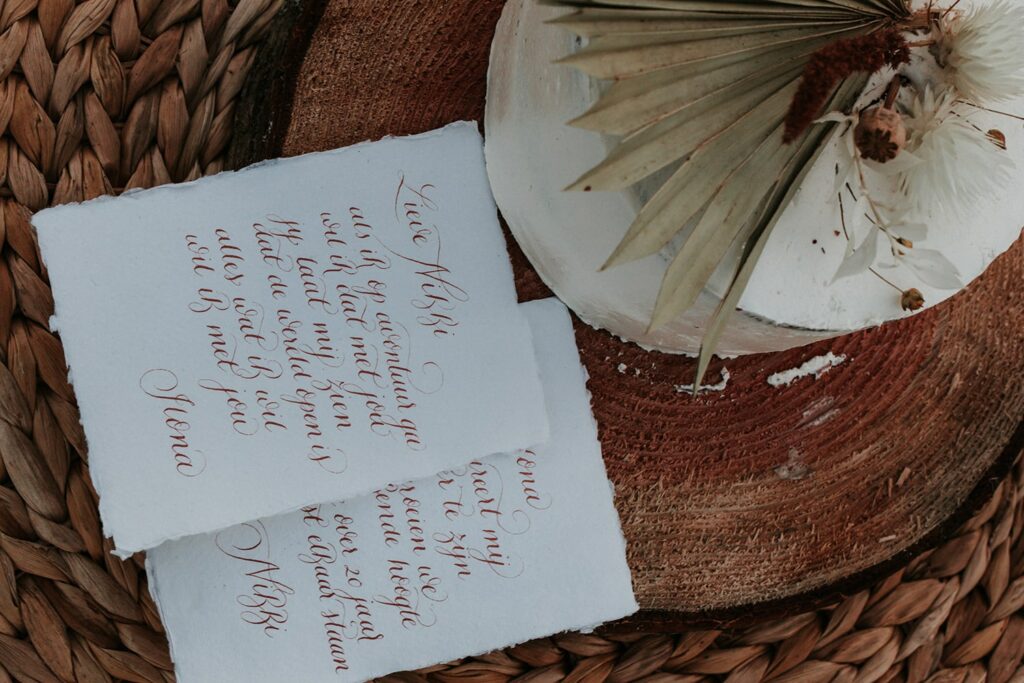 Lieve Nikki
als ik op avontuur ga
wil ik dat met jou
Jij laat mij zien
dat de wereld open is
alles wat ik wil
wil ik met jou
Ilona
mij
te zijn
we
hoogte
over 20 jaar
elkaar staan
Nikki